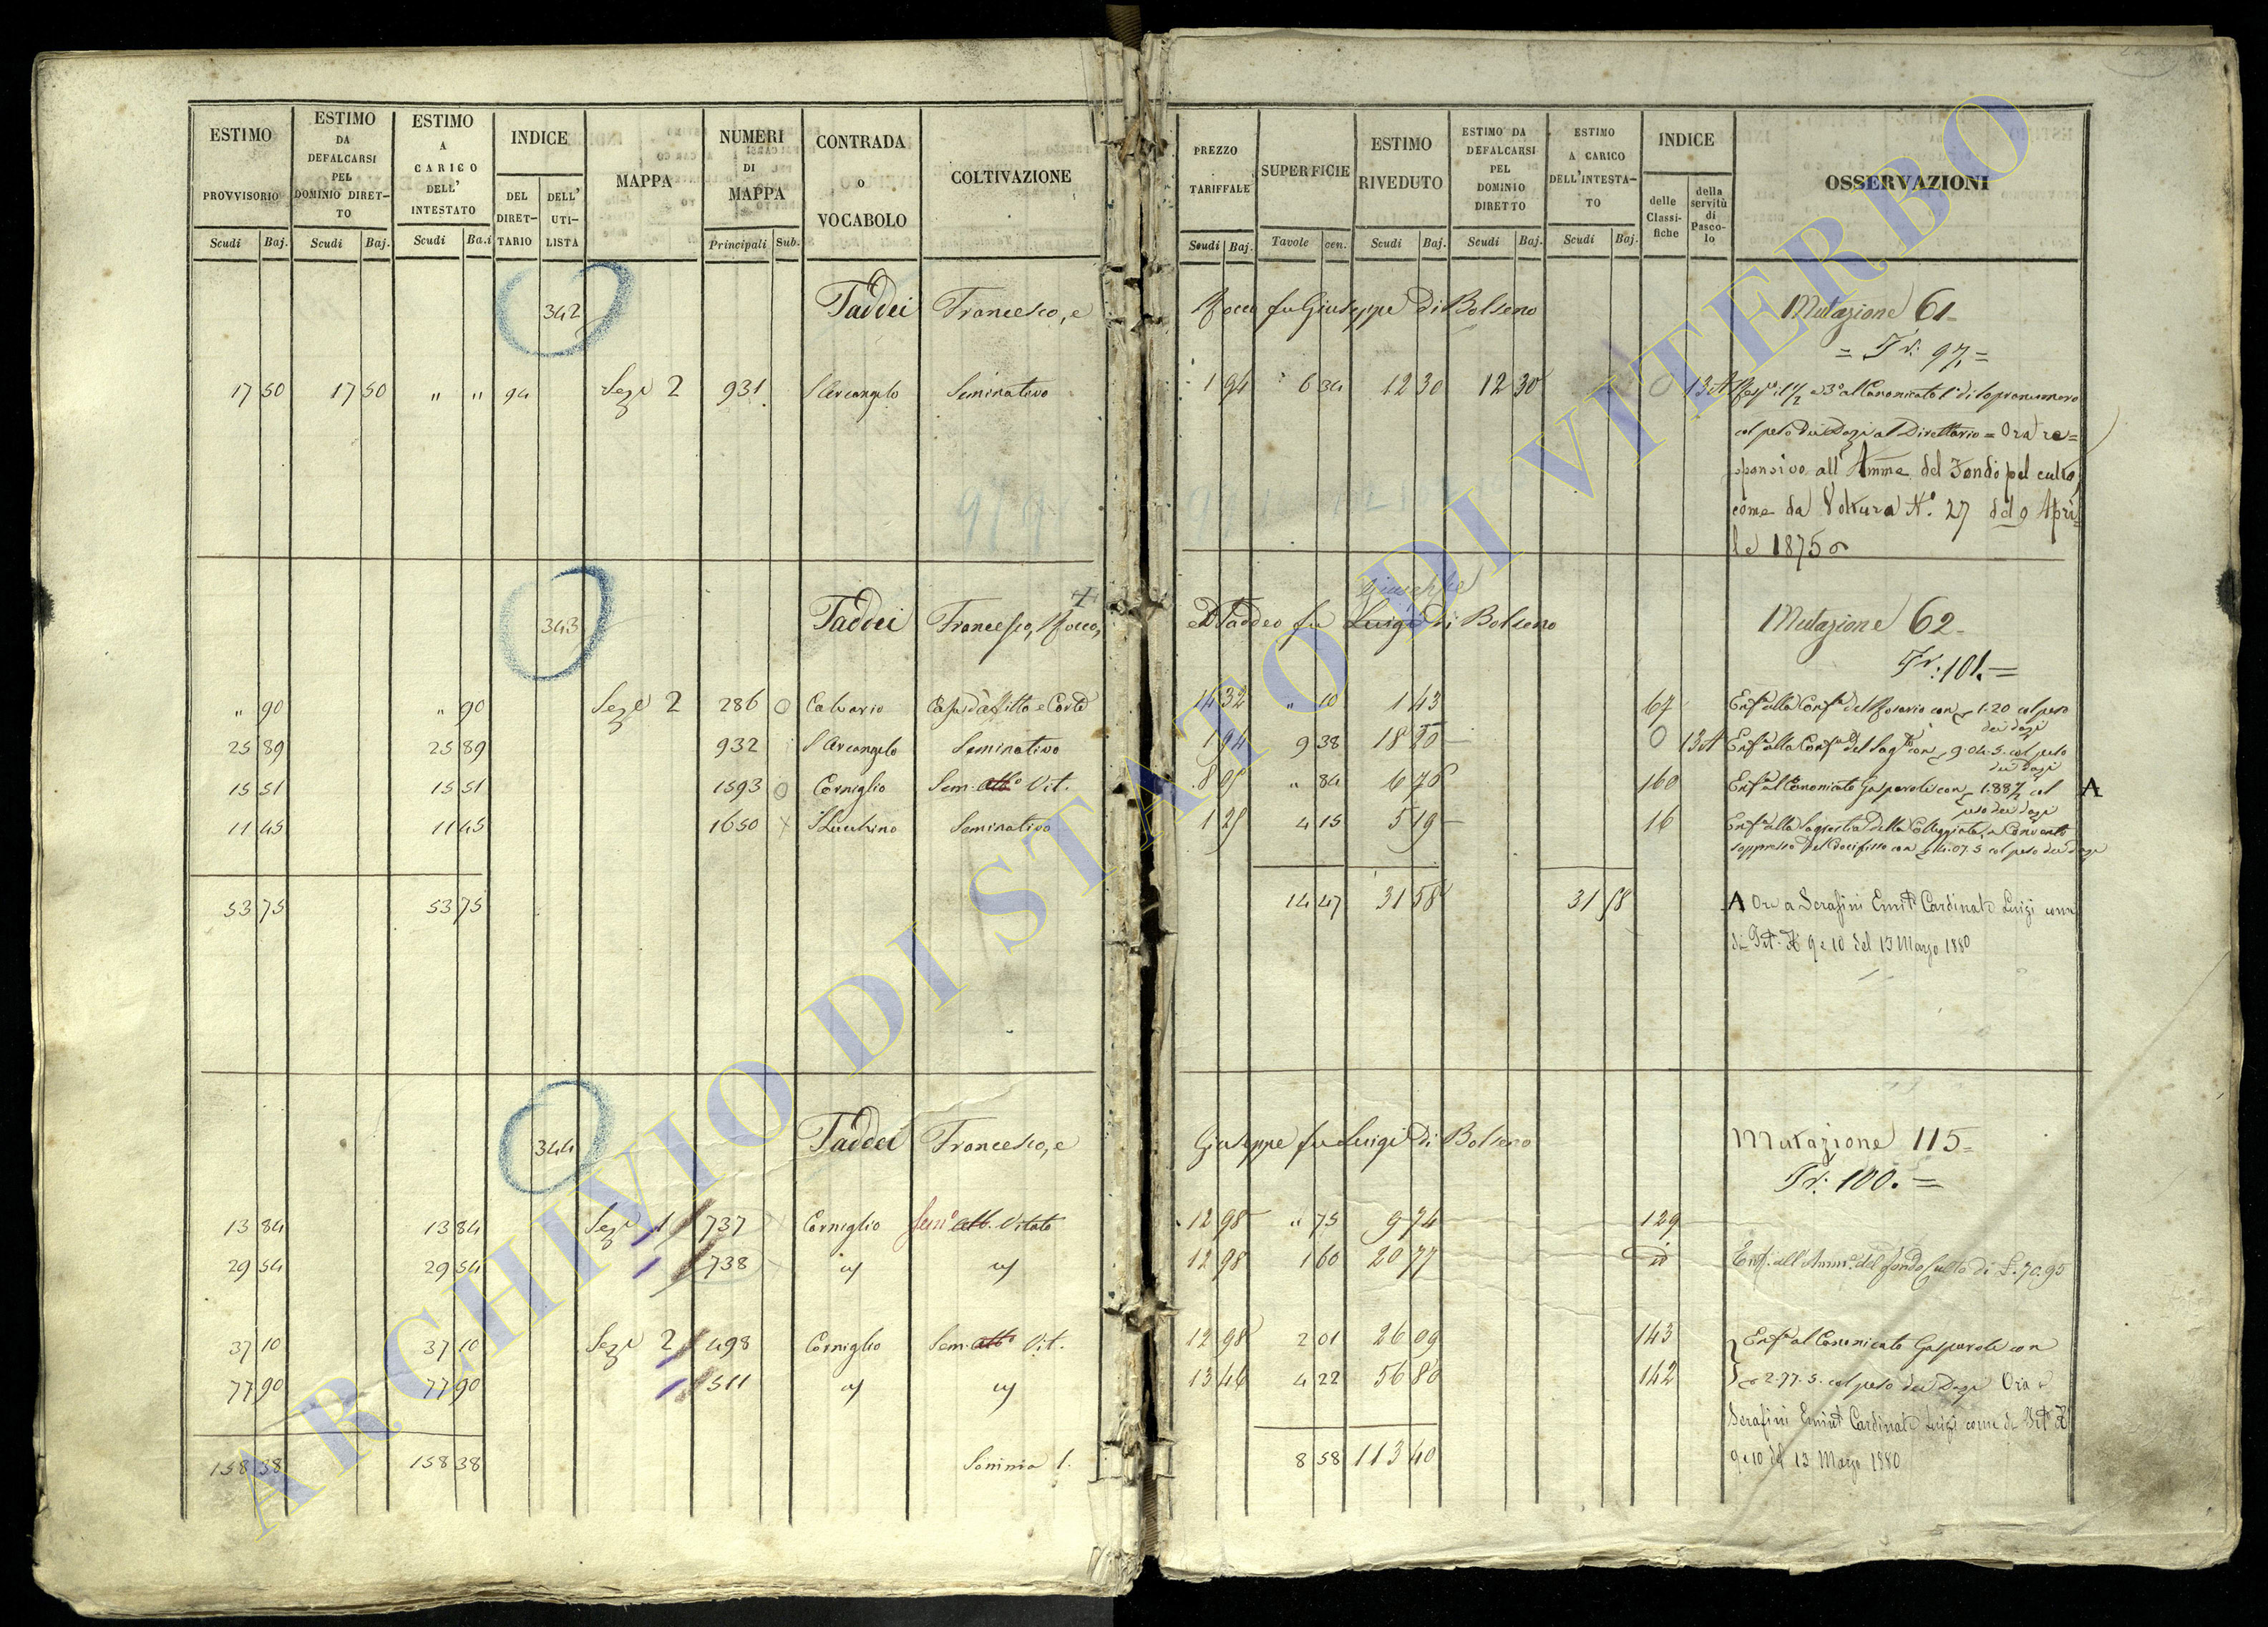 ESTIMO PROVVISORIO Scudi Baj.
ESTIMO DA DEFALCARSI PEL DOMINIO DIRETTO Scudi Baj.
ESTIMO A CARICO DELL' INTESTATO Scudi Ba.i
INDICE DEL DIRETTARIO DELL' UTILISTA
MAPPA
NUMERI DI MAPPA Principali Sub.
CONTRADA O VOCABOLO
COLTIVAZIONE
PREZZO TARIFFALE Scudi Baj.
SUPERFICIE Tavole cen.
ESTIMO RIVEDUTO Scudi Baj.
ESTIMO DA DEFALCARSI PEL DOMINIO DIRETTO Scudi Baj.
ESTIMO A CARICO DELL'INTESTATO Scudi Baj.
INDICE delle Classifiche della servitù di Pascolo
OSSERVAZIONI
342 Taddei Francesco, e Rocco fu Giuseppe di Bolseno Mutazione 61
= Tr: 97. =
17 50 17 50 " " 94 Seze 2 931 S Arcangelo Seminativo 1 94 6 34 12 30 12 30 O 13 A
col peso dei Dazi al Direttario = Ora re=
sponsivo all' Amme del Fondo pel culto
come da Voltura N.º 27 del 9 Apri=
le 1875
Giuseppe
343 Taddei Francesco, Rocco, e Taddeo fu Luigi di Bolseno Mutazione 62
Tr: 101. =
" 90 " 90 Seze 2 286 O Calvario Casa d'affitto e Corte 14 32 " 10 1 43 67 Enfa alla Confa del Rosario con 1.20 col peso
dei dazi
25 89 25 89 932 S Arcangelo Seminativo 1 94 9 38 18 20 O 13 A Enfa alla Confa del Sagto con 9.04.5 col peso
dei dazi
15 51 15 51 1593 O Corniglio Sem. Alb.o Vit. 8 05 " 84 6 76 160 Enfa al Canonicato Gasparoli con 1.88 1/2 col A
peso dei dazi
11 45 11 45 1650 X S Lucchino Seminativo 1 25 4 15 5 19 16 Enfa alla Sagrestia della Collegiata, e Convento
soppresso del Crocifisso con 4.07.5 col peso dei dazi
53 75 53 75 14 47 31 58 31 58 A Ora a Serafini Emt. Cardinale Luigi come
di Pet. N. 9 e 10 del 13 Marzo 1880
344 Taddei Francesco, e Giuseppe fu Luigi di Bolseno Mutazione 115=
Tr: 100. =
13 84 13 84 Seze 1 737 Corniglio Sem.o alb. Vitato 12 98 " 75 9 74 129
29 54 29 54 738 12 98 1 60 20 77 id Enf. all'Amm.e del fondo Culto di L. 70.95
37 10 37 10 Seze 2 498 Corniglio Sem. Alb.o Vit. 12 98 2 01 26 09 143 Enfa al Canonicato Gasparoli con
77 90 77 90 511 13 46 4 22 56 80 142 2.77.5. col peso dei Dazi Ora a
Serafini Emint. Cardinale Luigi come da Pet. N.
158 38 158 38 Somma l. 8 58 113 40 9 e 10 del 13 Marzo 1880
ARCHIVIO DI STATO DI VITERBO